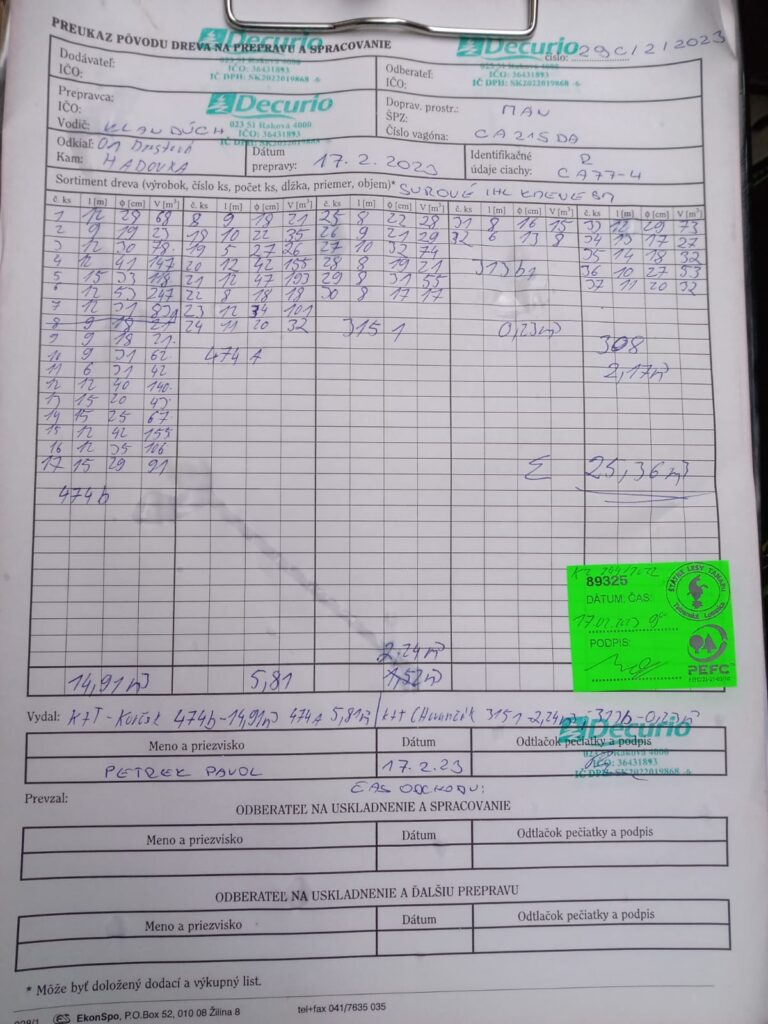 PREUKAZ PÔVODU DREVA NA PREPRAVU A SPRACOVANIE
Decurio
023 51 Raková 4000
IČO: 36431893
IČ DPH: SK2022019868 -6-
Decurio
IČO: 36431893
IČ DPH: SK2022019868 -6-
číslo: 290/2/2023
Dodávateľ:
IČO:
Odberateľ:
IČO:
Decurio
023 51 Raková 4000
IČO: 36431893
Prepravca:
IČO:
Vodič: KLAN DÚCH
Doprav. prostr.: MAN
ŠPZ:
Číslo vagóna: CA215DA
Odkiaľ:
Kam: HADOVKA
Dátum prepravy: 17. 2. 2023
Identifikačné údaje ciachy: R CA77-4
Sortiment dreva (výrobok, číslo ks, počet ks, dĺžka, priemer, objem)* SUROVÉ IHL KMENE SM
č. ks l [m] ϕ [cm] V [m³] č. ks l [m] ϕ [cm] V [m³] č. ks l [m] ϕ [cm] V [m³] č. ks l [m] ϕ [cm] V [m³] č. ks l [m] ϕ [cm] V [m³]
1 12 28 68 8 9 18 21 25 8 22 28 31 8 16 15 33 12 29 73
2 9 19 23 18 10 22 35 26 9 21 29 32 6 13 8 34 13 17 27
3 12 30 78 19 5 27 26 27 10 32 74 35 14 18 32
4 12 41 147 20 12 42 155 28 8 19 21 313b1 36 10 27 53
5 15 33 118 21 12 47 193 29 8 31 55 37 11 20 32
6 12 53 247 22 8 18 18 30 8 17 17
7 12 31 83 23 12 34 101
8 9 18 21 24 11 20 32 315 1 0,23m³
9 9 18 21 308
10 9 31 62 474 A 2,17m³
11 6 31 42
12 12 40 140
13 15 20 43
14 15 25 67
15 12 42 155
16 12 35 106
17 15 29 91 Σ 25,36m³
474b
89325
DÁTUM: ČAS:
17.02.2023
PODPIS:
ŠTÁTNE LESY TANAPU
Tatranská Lomnica
PEFC
2.24m³
14,91m³ 5,81 1,52m³
Vydal: 474b-14,91m³ 474A 5,81m³ 3151-2,24m³ -313b-0,23m³
Decurio
023 51 Raková 4000
IČO: 36431893
IČ DPH: SK2022019868 -6-
Meno a priezvisko Dátum Odtlačok pečiatky a podpis
PETREK PAVOL 17.2.23
Prevzal: ČAS ODCHODU:
ODBERATEĽ NA USKLADNENIE A SPRACOVANIE
Meno a priezvisko Dátum Odtlačok pečiatky a podpis
ODBERATEĽ NA USKLADNENIE A ĎALŠIU PREPRAVU
Meno a priezvisko Dátum Odtlačok pečiatky a podpis
* Môže byť doložený dodací a výkupný list.
EkonSpo, P.O.Box 52, 010 08 Žilina 8 tel+fax 041/7635 035